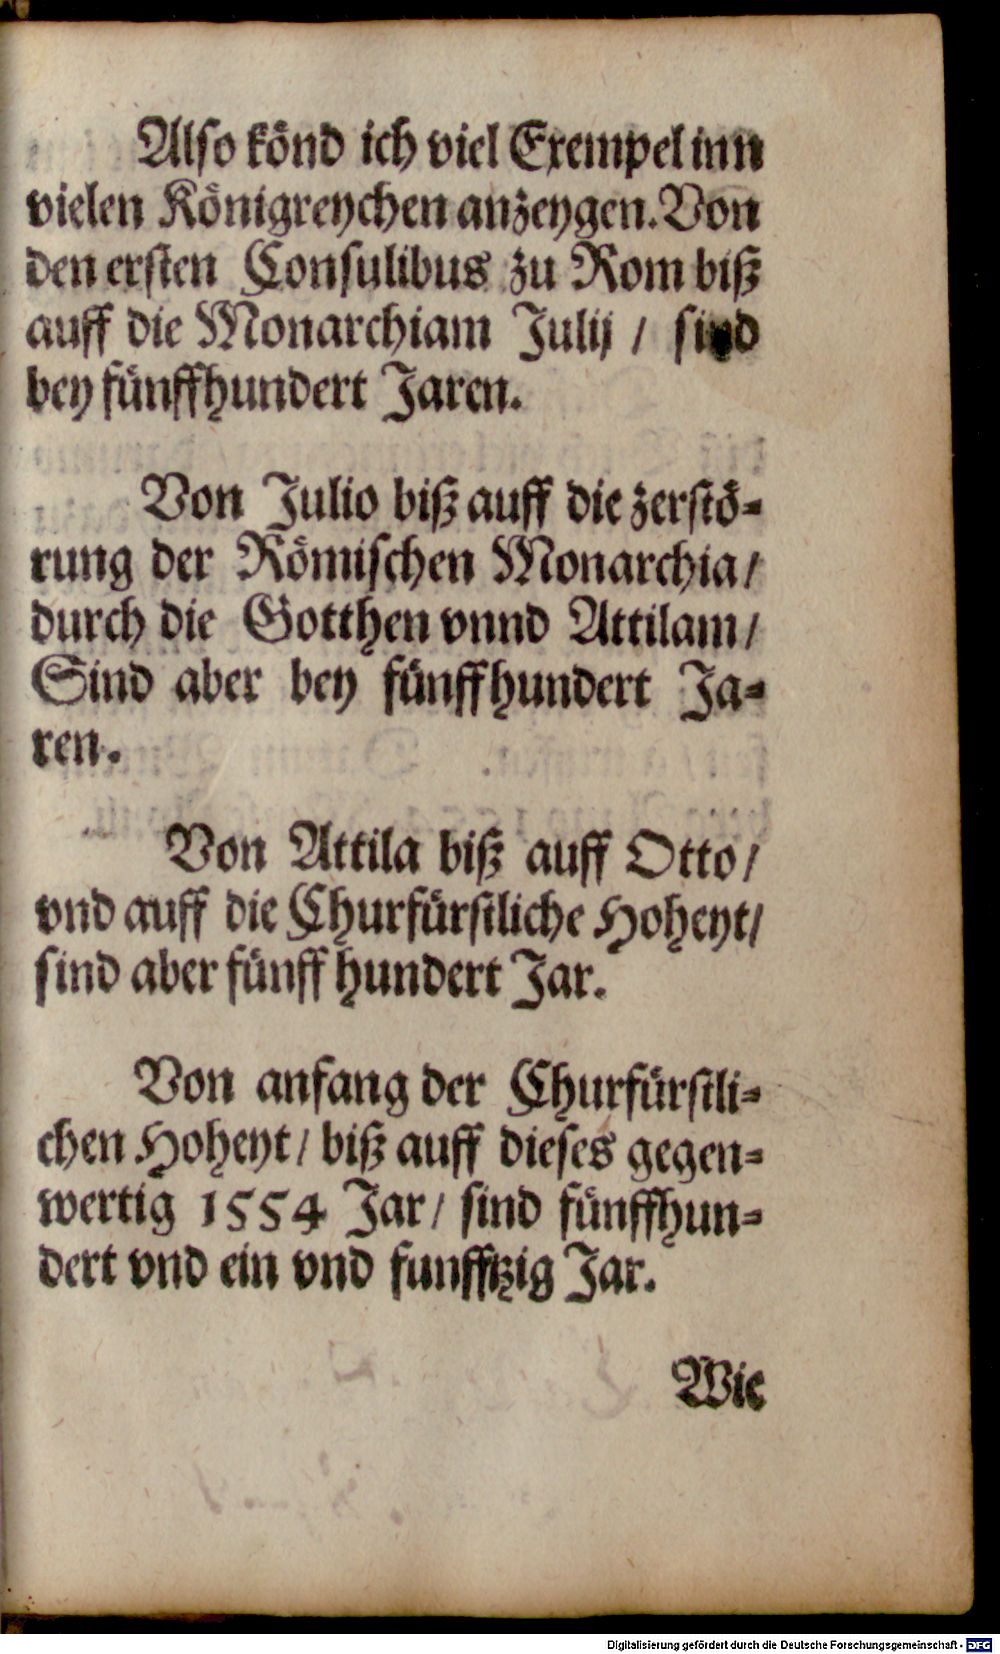 Also könd ich viel Exempel inn
vielen Königreychen anzeygen. Von
den ersten Consulibus zu Rom biß
auff die Monarchiam Julij / sind
bey fünffhundert Jaren.
Von Julio biß auff die zerstö-
rung der Römischen Monarchia /
durch die Gotthen vnnd Attilam /
Sind aber bey fünffhundert Ja-
ren.
Von Attila biß auff Otto /
vnd auff die Churfürstliche Hoheyt /
sind aber fünff hundert Jar.
Von anfang der Churfürstli-
chen Hoheyt / biß auff dieses gegen-
wertig 1554 Jar / sind fünffhun-
dert vnd ein vnd funfftzig Jar.
Wie
Digitalisierung gefördert durch die Deutsche Forschungsgemeinschaft - DFG